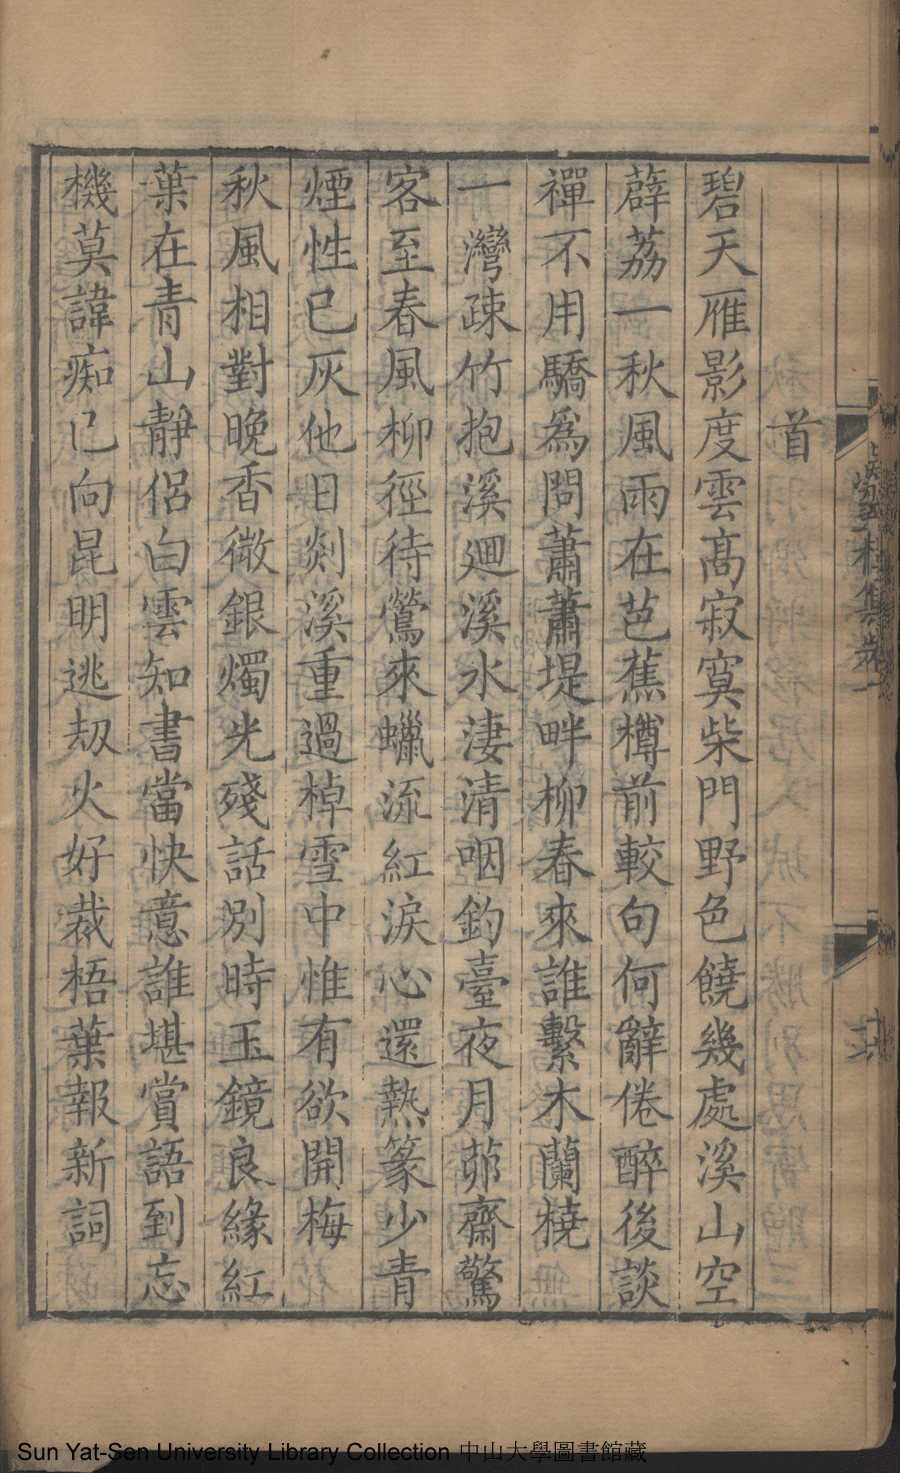 首
碧天雁影度雲高寂寞柴門野色饒幾處溪山空
薜荔一秋風雨在芭蕉樽前較句何辭倦醉後談
禪不用驕為問蕭蕭堤畔柳春來誰繫木蘭橈
一灣疎竹抱溪廻溪水淒清咽釣臺夜月茆齋驚
客至春風柳徑待鶯來蠟流紅淚心還熱篆少青
煙性已灰他日剡溪重過棹雪中惟有欲開梅
秋風相對晚香微銀燭光殘話別時玉鏡良緣紅
葉在青山靜侶白雲知書當快意誰堪賞語到忘
機莫諱痴已向昆明逃刼火好裁梧葉報新詞
Sun Yat-Sen University Library Collection 中山大學圖書館藏